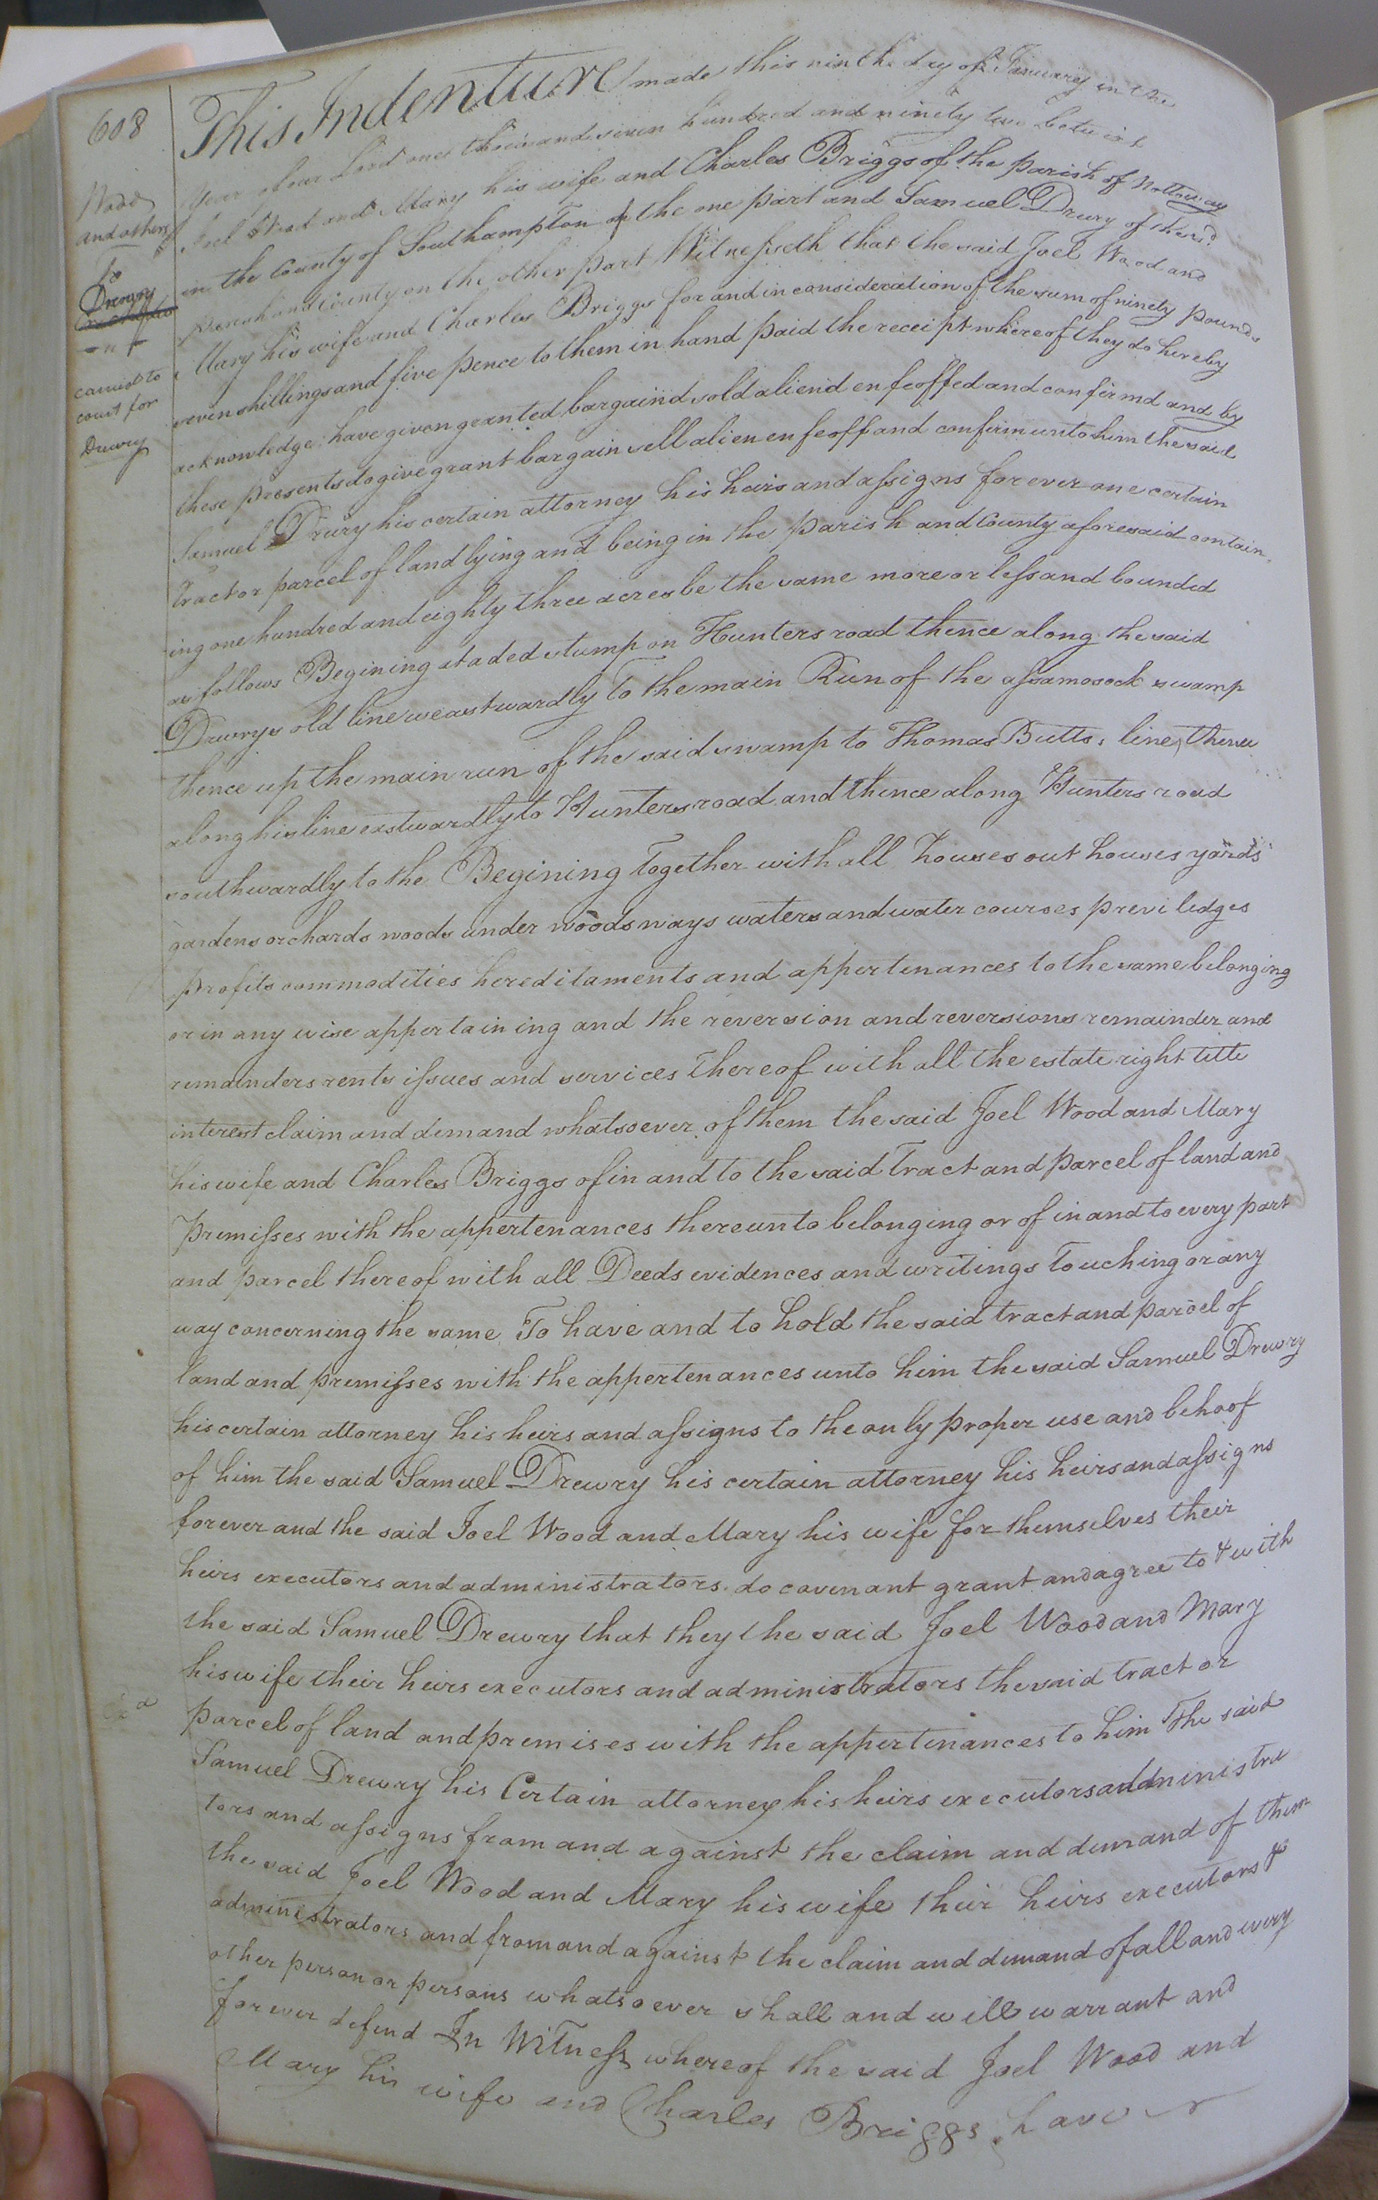 608
Wood
and others
to
Drewry
carried to
court for
Drewry
This Indenture made this ninth day of January in the
Year of our Lord one thousand seven hundred and ninety two betwixt
Joel Wood and Mary his wife and Charles Briggs of the parish of Nottoway
in the County of Southampton of the one part and Samuel Drury of the sd.
parish and County on the other part Witnesseth that the said Joel Wood and
Mary his wife and Charles Briggs for and in consideration of the sum of ninety pounds
seven shillings and five pence to them in hand paid the receipt whereof they do hereby
acknowledge have given granted bargaind sold aliend enfeoffed and confirmd and by
these presents do give grant bargain sell alien enfeoff and confirm unto him the said
Samuel Drury his certain attorney his heirs and assigns for ever one certain
Tract or parcel of land lying and being in the parish and County aforesaid contain
ing one hundred and eighty three acres be the same more or less and bounded
as follows Begining at a ded stump on Hunters road thence along the said
Drewrys old line weastwardly to the main Run of the assamosock swamp
thence up the main run of the said swamp to Thomas Butts, line, thence
along his line eastwardly to Hunters road and thence along Hunters road
southwardly to the Begining Together with all houses out houses yards
gardens orchards woods under woods ways waters and water courses previledges
profits commodities hereditaments and appertenances to the same belonging
or in any wise appertaining and the reversion and reversions remainder and
remainders rents issues and services thereof with all the estate right title
interest claim and demand whatsoever of them the said Joel Wood and Mary
his wife and Charles Briggs of in and to the said Tract and parcel of land and
Premisses with the appertenances thereunto belonging or of in and to every part
and parcel thereof with all Deeds evidences and writings touching or any
way concerning the same To have and to hold the said tract and parcel of
land and premisses with the appertenances unto him the said Samuel Drewry
his certain attorney his heirs and assigns to the only proper use and behoof
of him the said Samuel Drewry his certain attorney his heirs and assigns
forever and the said Joel Wood and Mary his wife for themselves their
heirs executors and administrators do covenant grant and agree to & with
the said Samuel Drewry that they the said Joel Wood and Mary
his wife their heirs executors and administrators the said tract or
parcel of land and premises with the appertinances to him the said
Samuel Drewry his Certain attorney his heirs executors administra
tors and assigns from and against the claim and demand of them
the said Joel Wood and Mary his wife their heirs executors &
administrators and from and against the claim and demand of all and every
other person or persons whatsoever shall and will warrant and
forever defend In Witness whereof the said Joel Wood and
Mary his wife and Charles Briggs have